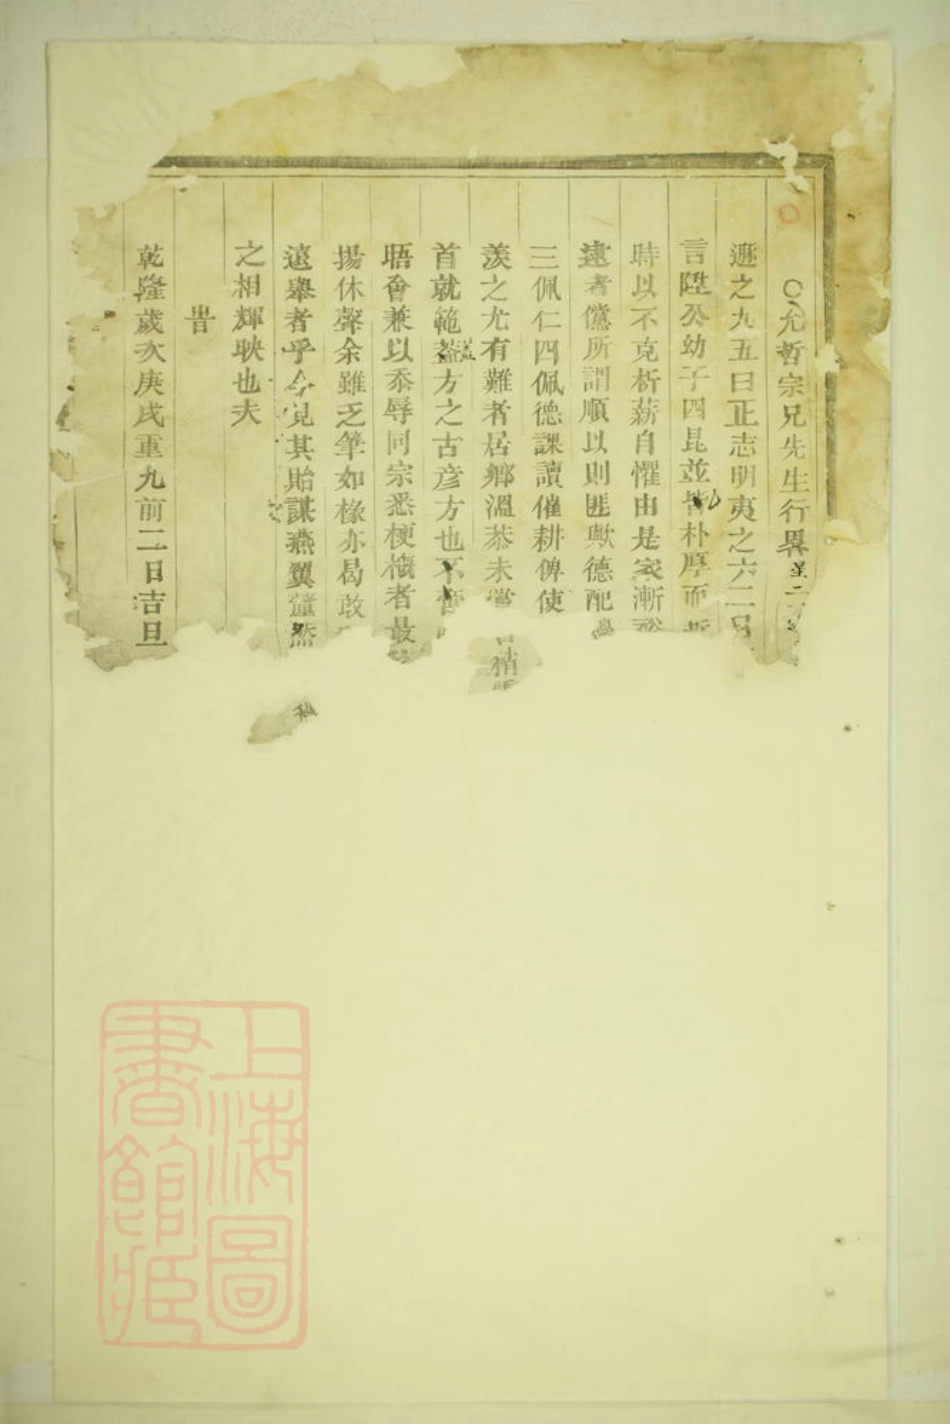 ○允哲宗兄先生行畧
遯之九五曰正志明夷之六二曰
言陞公幼子四昆並皆朴厚而
時以不克析薪自懼由是家漸
遠者儻所謂順以則匪歟德配
三佩仁四佩德課讀催耕俾使
羨之尤有難者居鄉溫恭未嘗
首就範蓋方之古彥方也不
晤會兼以忝辱同宗悉梗槪者最
揚休聲余雖乏筆如椽亦曷敢
遠舉者乎今見其貽謀燕翼
之相輝映也夫
旹
乾隆歲次庚戌重九前二日吉旦
上海圖書館藏